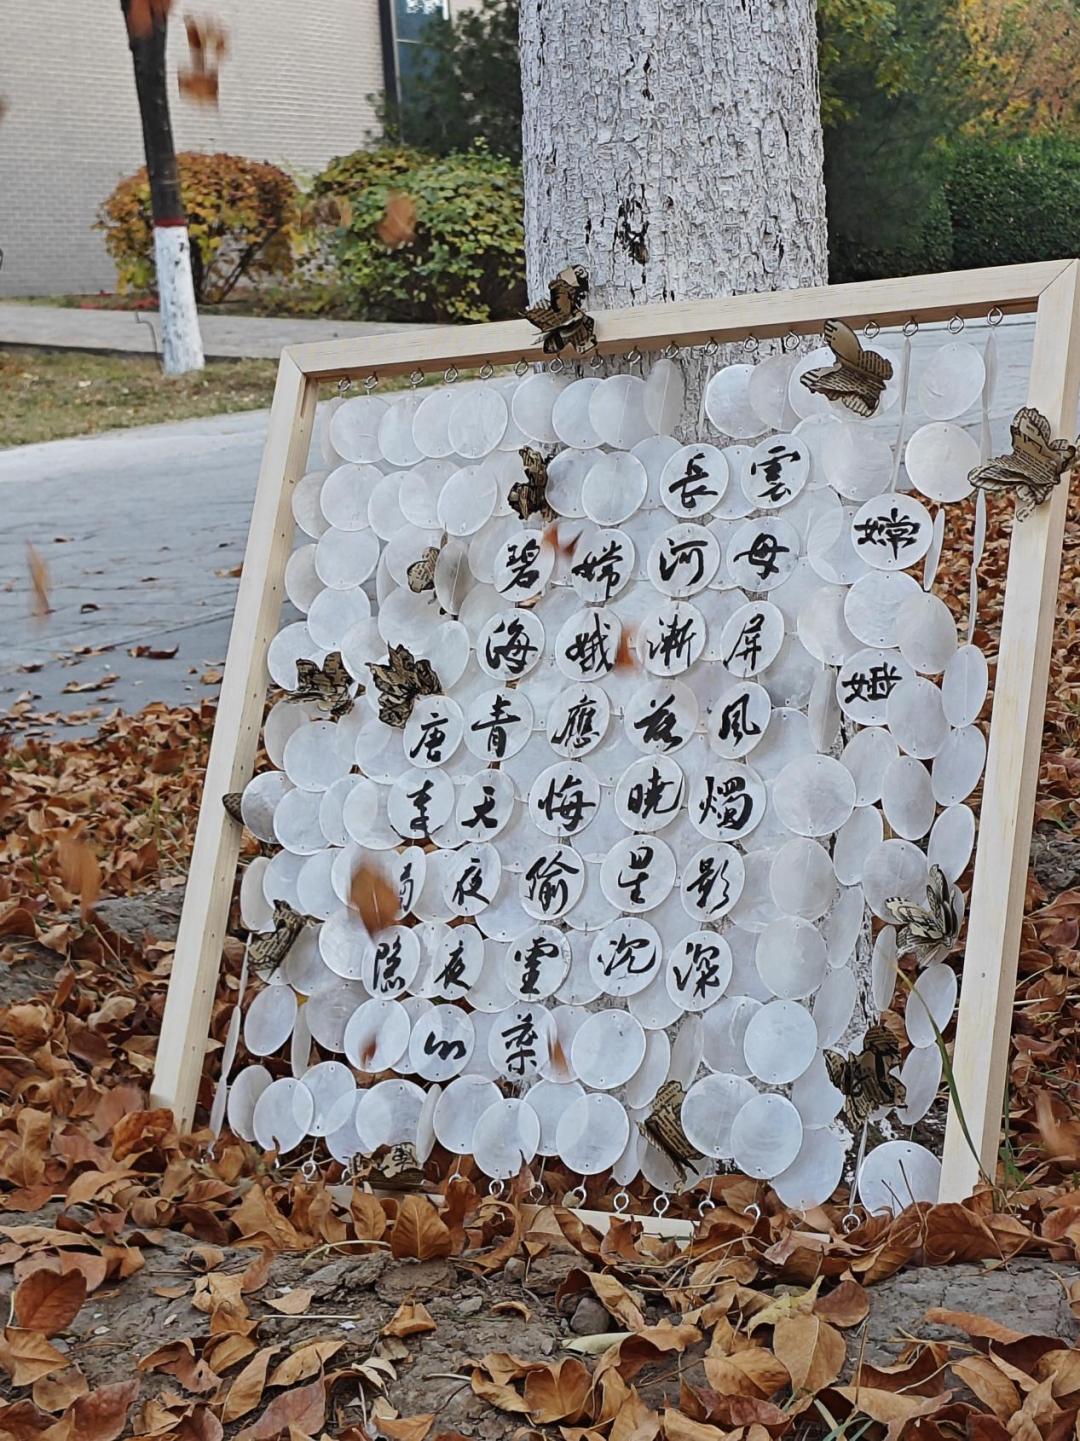 嫦娥
雲母屏風燭影深
長河漸落曉星沉
嫦娥應悔偷靈藥
碧海青天夜夜心
唐李商隱